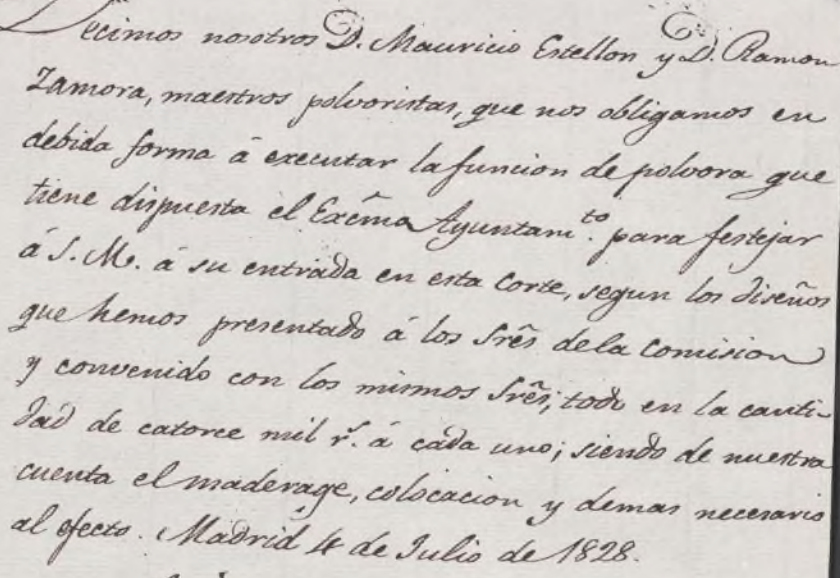 Decimos nosotros D. Mauricio Estellon y D. Ramon
Zamora, maestros polvoristas, que nos obligamos en
debida forma á executar la funcion de polvora que
tiene dispuesta el Exc̃mo Ayuntam.to para festejar
á S. M. á su entrada en esta Corte, segun los diseños
que hemos presentado á los Srẽs dela Comision
y convenido con los mismos Srẽs; todo en la canti-
dad de catorce mil r.s á cada uno; siendo de nuestra
cuenta el maderage, colocacion y demas necesario
al efecto. Madrid 4 de Julio de 1828.